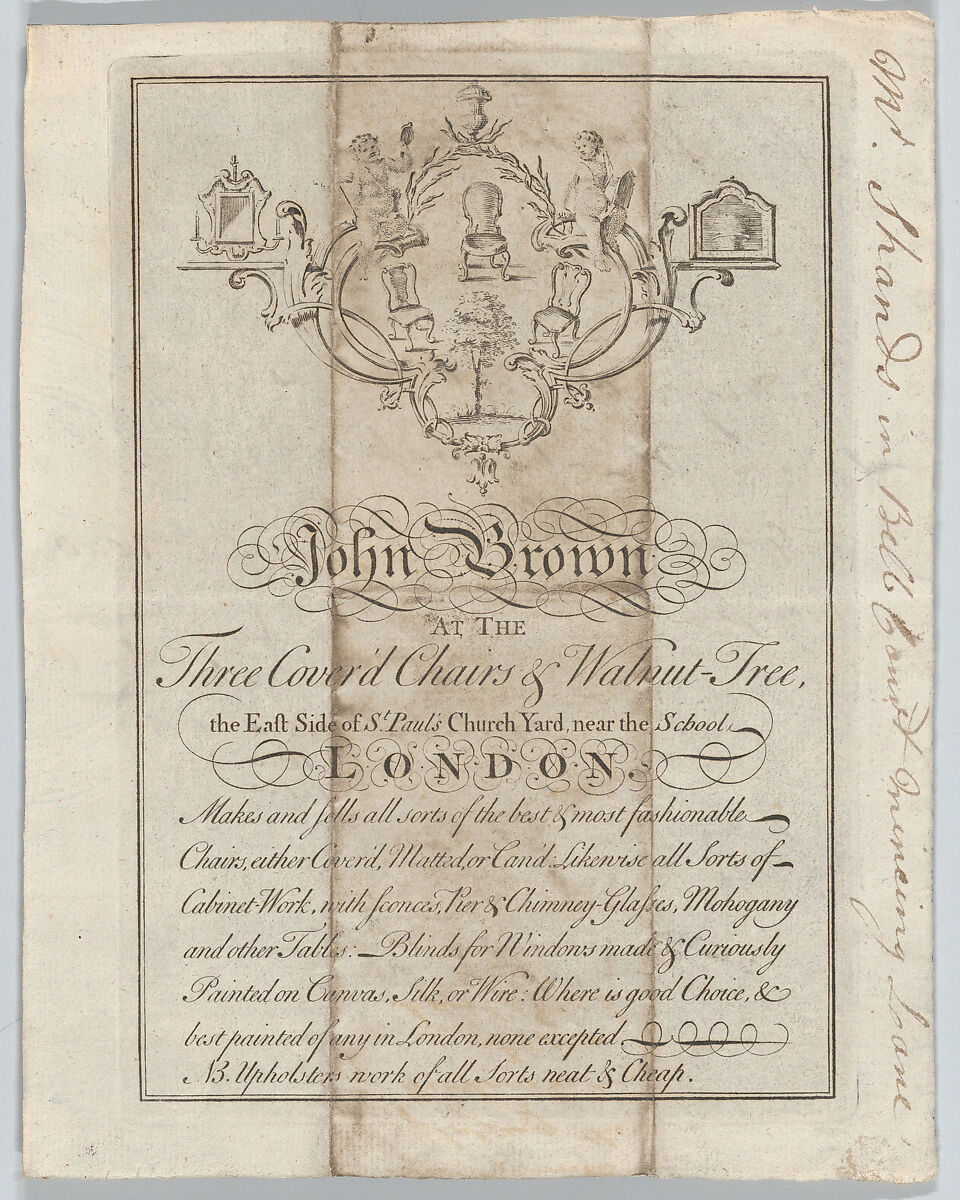 John Brown
AT THE
Three Cover'd Chairs & Walnut-Tree,
the East Side of St. Paul's Church Yard, near the School
LONDON.
Makes and sells all sorts of the best & most fashionable
Chairs, either Cover'd, Matted, or Can'd: Likewise all Sorts of
Cabinet-Work, with sconces, Pier & Chimney-Glasses, Mohogany
and other Tables: Blinds for Windows made & Curiously
Painted on Canvas, Silk, or Wire: Where is good Choice, &
best painted of any in London, none excepted
NB. Upholsters work of all Sorts neat & Cheap.
Mr. Shands in Bell Court Mincing Laane